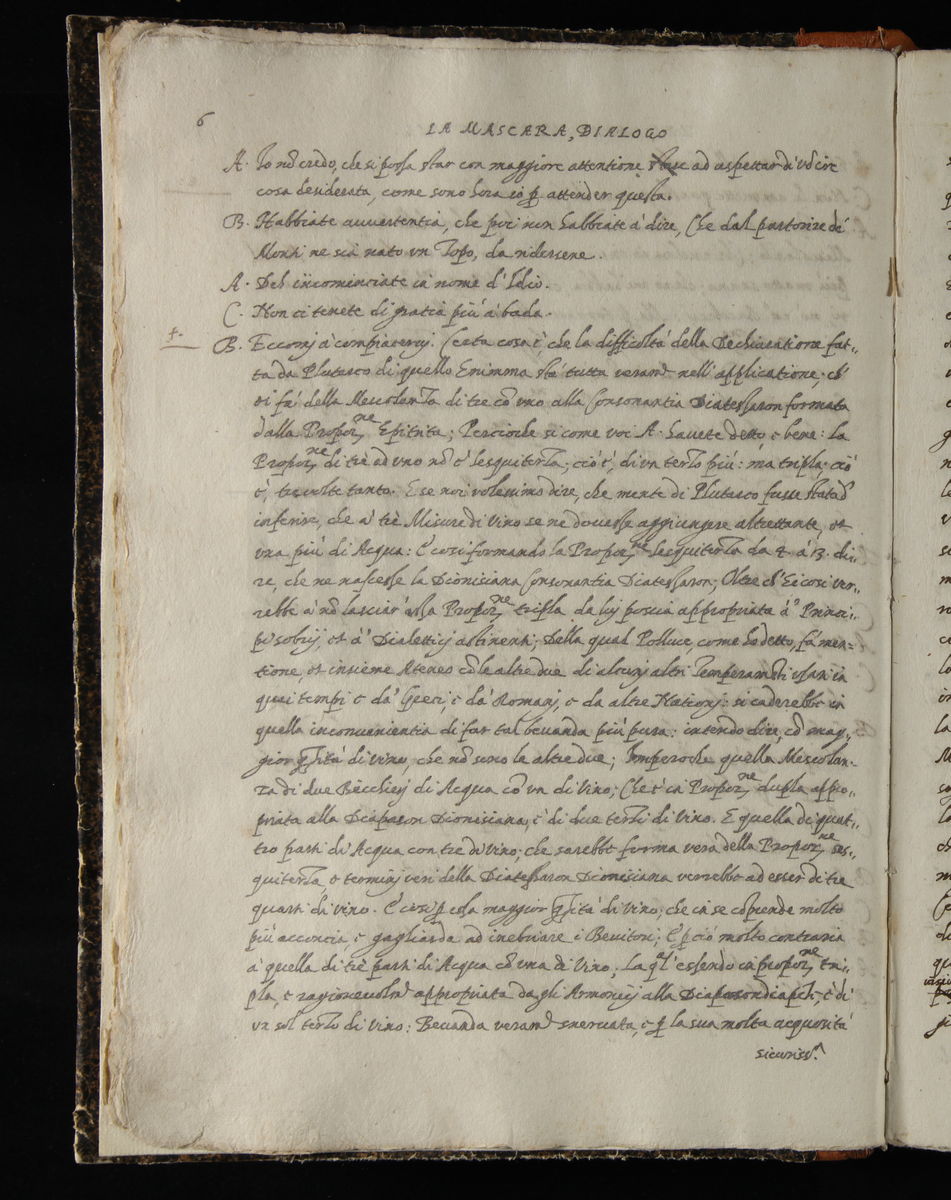 6
LA MASCARA, DIALOGO
A. Io nõ credo, che si possa star con maggiore attentione ad aspettar d'udire
cosa desiderata, come sono hora io p attender questa.
B. Habbiate auuertentia, che poi non habbiate à dire, Che dal partorire de'
Monti ne sia nato vn Topo, da ridersene.
A. Deh incominciate in nome d'Idio.
C. Non ci tenete di gratia più à bada.
B. Eccomi à compiacerui. Certa cosa è, che la difficoltà della Dechiaratione fat-
ta da Plutarco di quello Enimma sta tutta veramẽ nell'applicatione, ch'
si fà della Mescolenza di tre cõ vno alla Consonantia Diatessaron formata
dalla Propor.ne Epitrita; Percioche si come voi A. hauete detto, e bene: la
Propor.ne di trè ad vno nõ è sesquiterza, ciò è, di vn terzo più: mà tripla, ciò
è, tre volte tanto. E se noi volessimo dire, che mente di Plutarco fusse stata d'
inferire, che a' trè Misure di Vino se ne douesse aggiungere altrettante, et
vna più di Acqua: E cosi formando la Propor.ne sesquiterza da 4. à 3. di-
re, che ne nascesse la Dionisiana Consonantia Diatessaron; Oltre ch'Ei cosi ver-
rebbe à nõ lasciar' essa Propor.ne tripla da lui poscia appropriata à i Princi-
pi sobrij, et à i Dialettici astinenti; Della qual Polluce, come ho detto, fà men-
tione, et insieme Ateneo cõ le altre due di alcuni altri Temperamẽti vsati in
quei tempi e da' Greci, e da' Romani, e da altre Nationi: si caderebbe in
quella inconuenientia di far tal beuanda più pura: intendo dire, cõ mag-
gior qtità di vino, che nõ sono le altre due; Imperoche quella Mescolan-
za di due Bicchieri di Acqua cõ vn di Vino; Che è in Propor.ne dupla appro-
priata alla Diapason Dionisiana, è di due terzi di Vino. E quella di quat-
tro parti di Acqua con tre di Vino; che sarebbe forma vera della Propor.ne ses-
quiterza, e termini veri della Diatessaron Dionisiana verrebbe ad esser di tre
quarti di vino. E cosi p essa maggior qtità di Vino, che in se cõprende molto
più acconcia, e gagliarda ad inebriare i Beuitori; E p ciò molto contraria
à quella di trè parti di Acqua cõ vna di Vino, La ql' essendo in propor.ne tri-
pla, e ragioneuolmẽ appropriata da gli Armonici alla Diapason diapẽte, è di
vn sol terzo di Vino: Beuanda veramẽ sneruata, e p la sua molta acquosità
sicuriss.